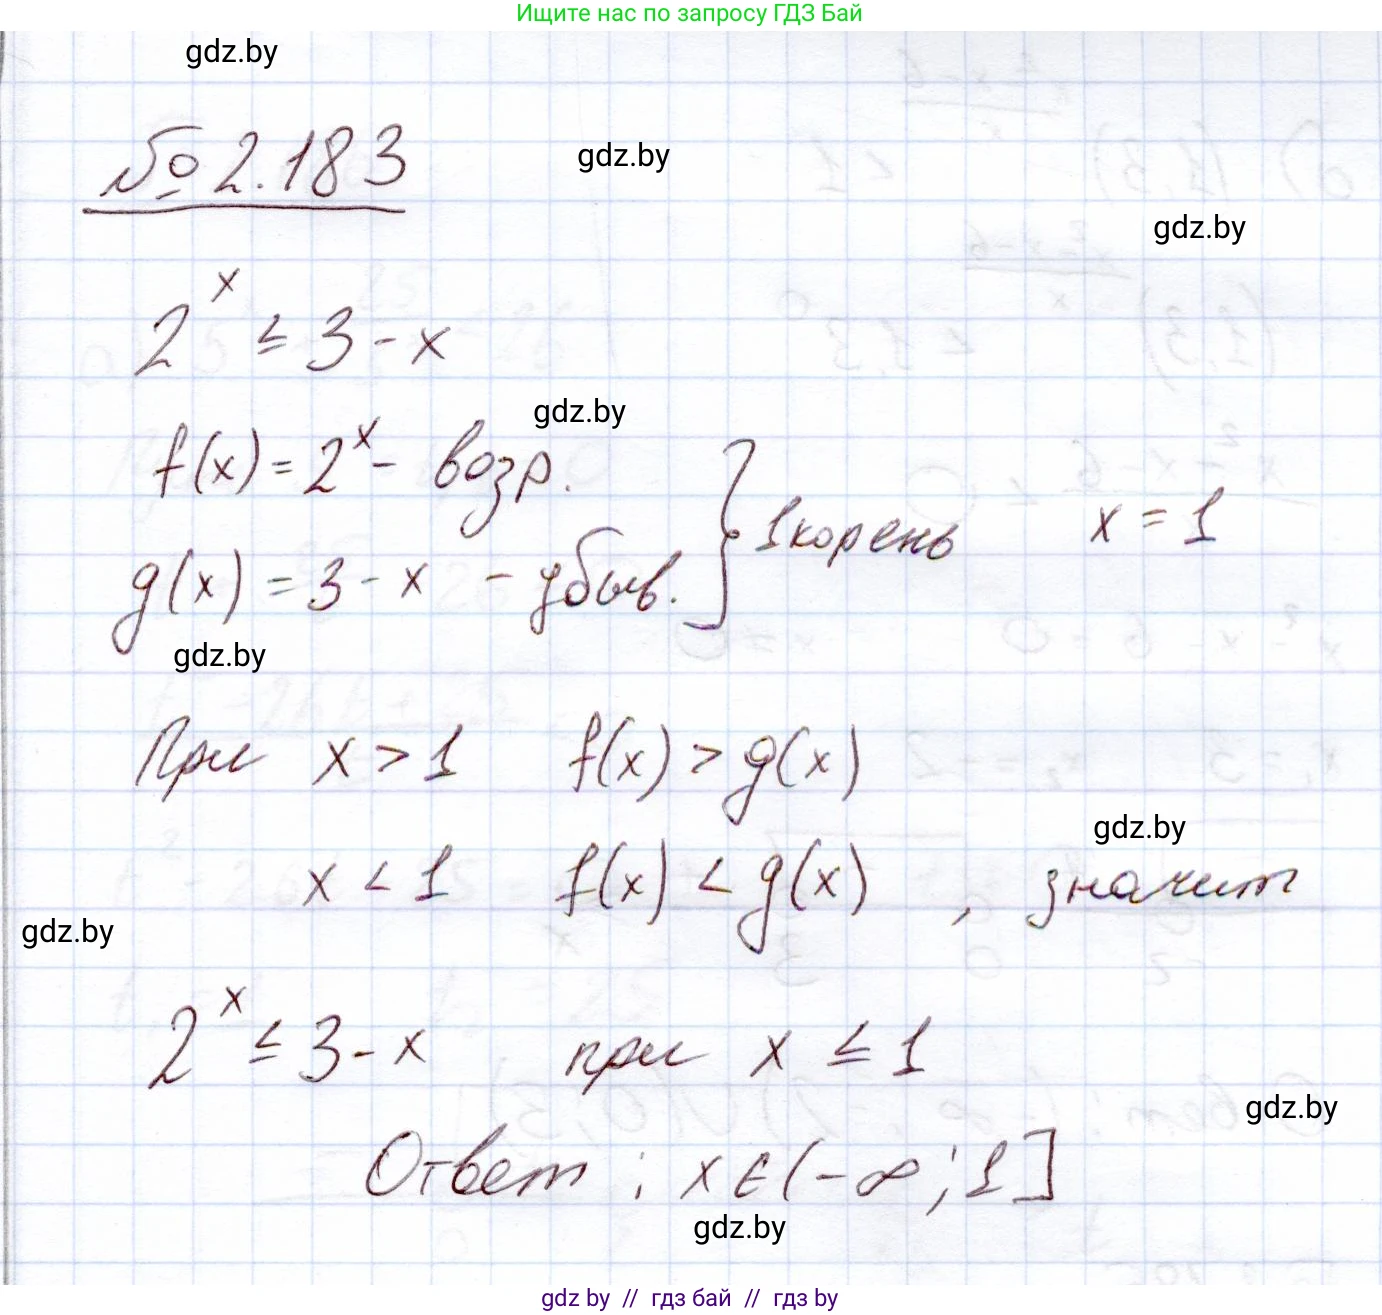 Ищите нас по запросу ГДЗ Бай
gdz.by
№ 2.183
gdz.by
gdz.by
2^x ≤ 3 - x
gdz.by
f(x) = 2^x - возр.
g(x) = 3 - x - убыв.
} 1 корень x = 1
gdz.by
При x > 1 f(x) > g(x)
gdz.by
x < 1 f(x) < g(x) , значит
gdz.by
2^x ≤ 3 - x при x ≤ 1
gdz.by
Ответ : x ∈ (-∞; 1]
gdz.by
gdz by // гдз бай // гдз by